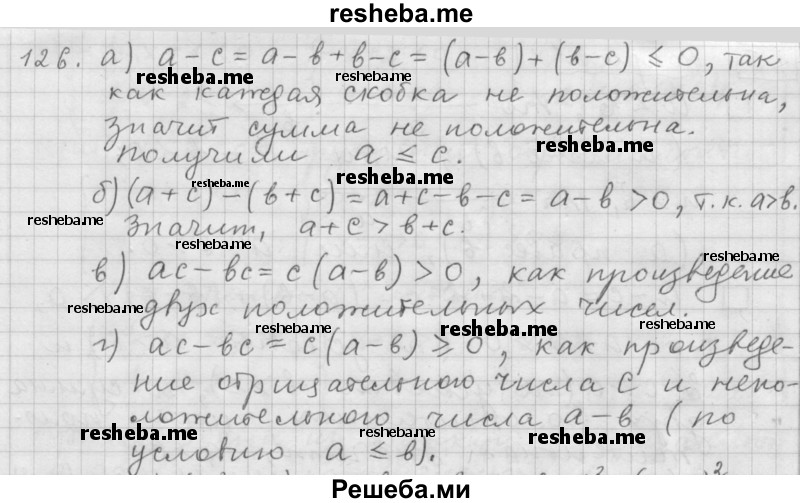 resheba.me
126. а) a - c = a - в + в - c = (a-в) + (в-c) ≤ 0, так
resheba.me resheba.me
как каждая скобка не положительна,
значит сумма не положительна.
resheba.me
получили a ≤ c.
resheba.me resheba.me
б) (a+c) - (в+c) = a+c-в-c = a-в > 0, т.к. a>в.
resheba.me
Значит, a+c > в+c.
resheba.me
в) ac-вc = c(a-в) > 0, как произведение
resheba.me resheba.me
двух положительных чисел.
resheba.me resheba.me resheba.me
г) ac-вc = c(a-в) ≥ 0, как произведе-
ние отрицательного числа c и непо-
ложительного числа a-в (по
resheba.me resheba.me resheba.me
условию a ≤ в).
Решеба.ми